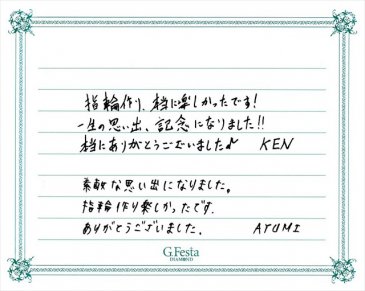 指輪作り、本当に楽しかったです!
一生の思い出、記念になりました!!
本当にありがとうございました♪ KEN
素敵な思い出になりました。
指輪作り楽しかったです。
ありがとうございました。 AYUMI
G.Festa
DIAMOND